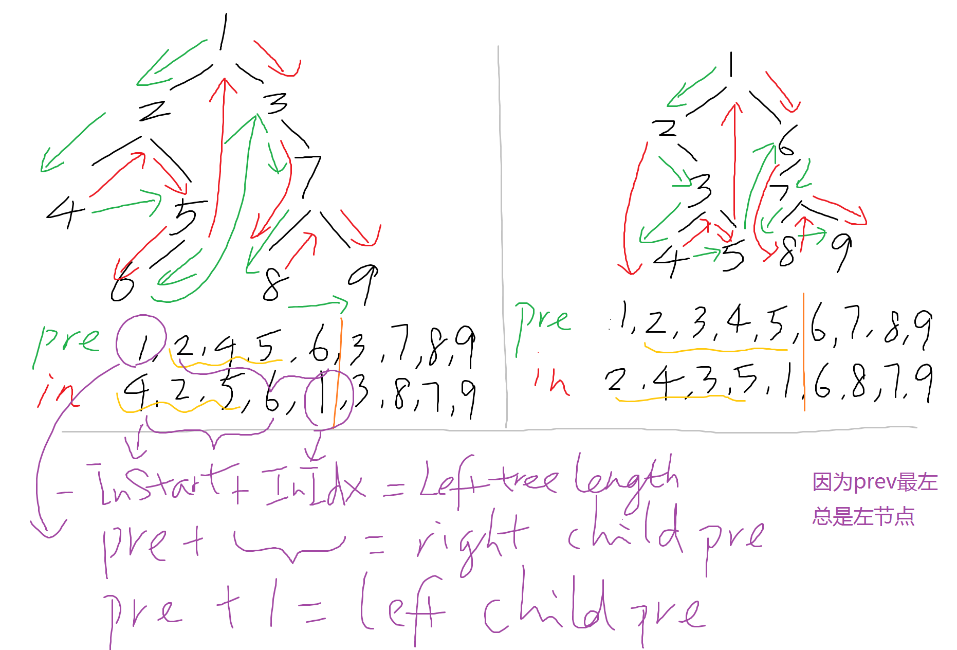 1
2 3
7
4 5
6 8 9
pre 1,2,4,5,6,3,7,8,9
in 4,2,5,6,1,3,8,7,9
1
2 6
3 7
4 5 8 9
pre 1,2,3,4,5,6,7,8,9
in 2,4,3,5,1,6,8,7,9
- InStart + InIdx = Left tree length
pre + = right child pre
pre + 1 = left child pre
因为prev最左
总是左节点